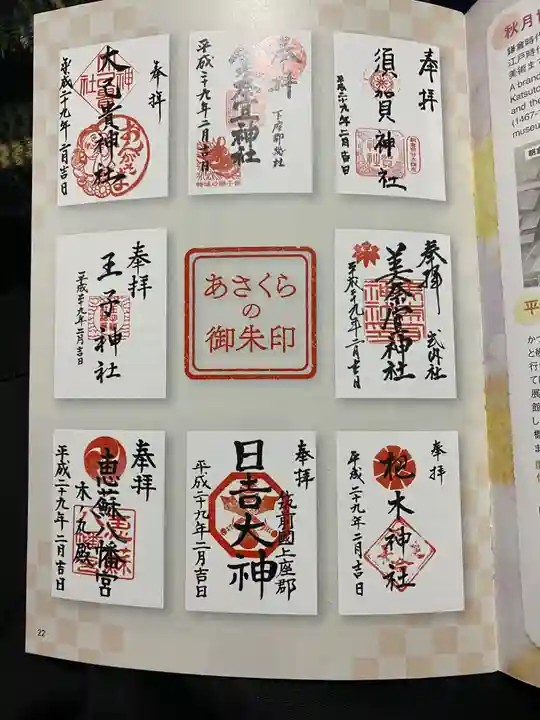 奉拝
須賀神社
平成二十九年二月吉日
奉拝
下座郡惣社
美奈宜神社
平成二十九年二月吉日
奉拝
大己貴神社
平成二十九年二月吉日
おんがさま
奉拝
武内社
美奈宜神社
平成二十九年二月吉日
あさくら
の
御朱印
奉拝
王子神社
平成二十九年二月吉日
奉拝
木神社
平成二十九年二月吉日
奉拝
筑前國上座郡
日吉大神
平成二十九年二月吉日
奉拝
恵蘇八幡宮
木ノ丸殿
平成二十九年二月吉日
22
秋月
鎌倉時代
江戸時代
美術ま
A brand
Katsuto
and the
(1467-
museu
朝倉
平
かつ
と
行
て
展
館
し
橋
ま